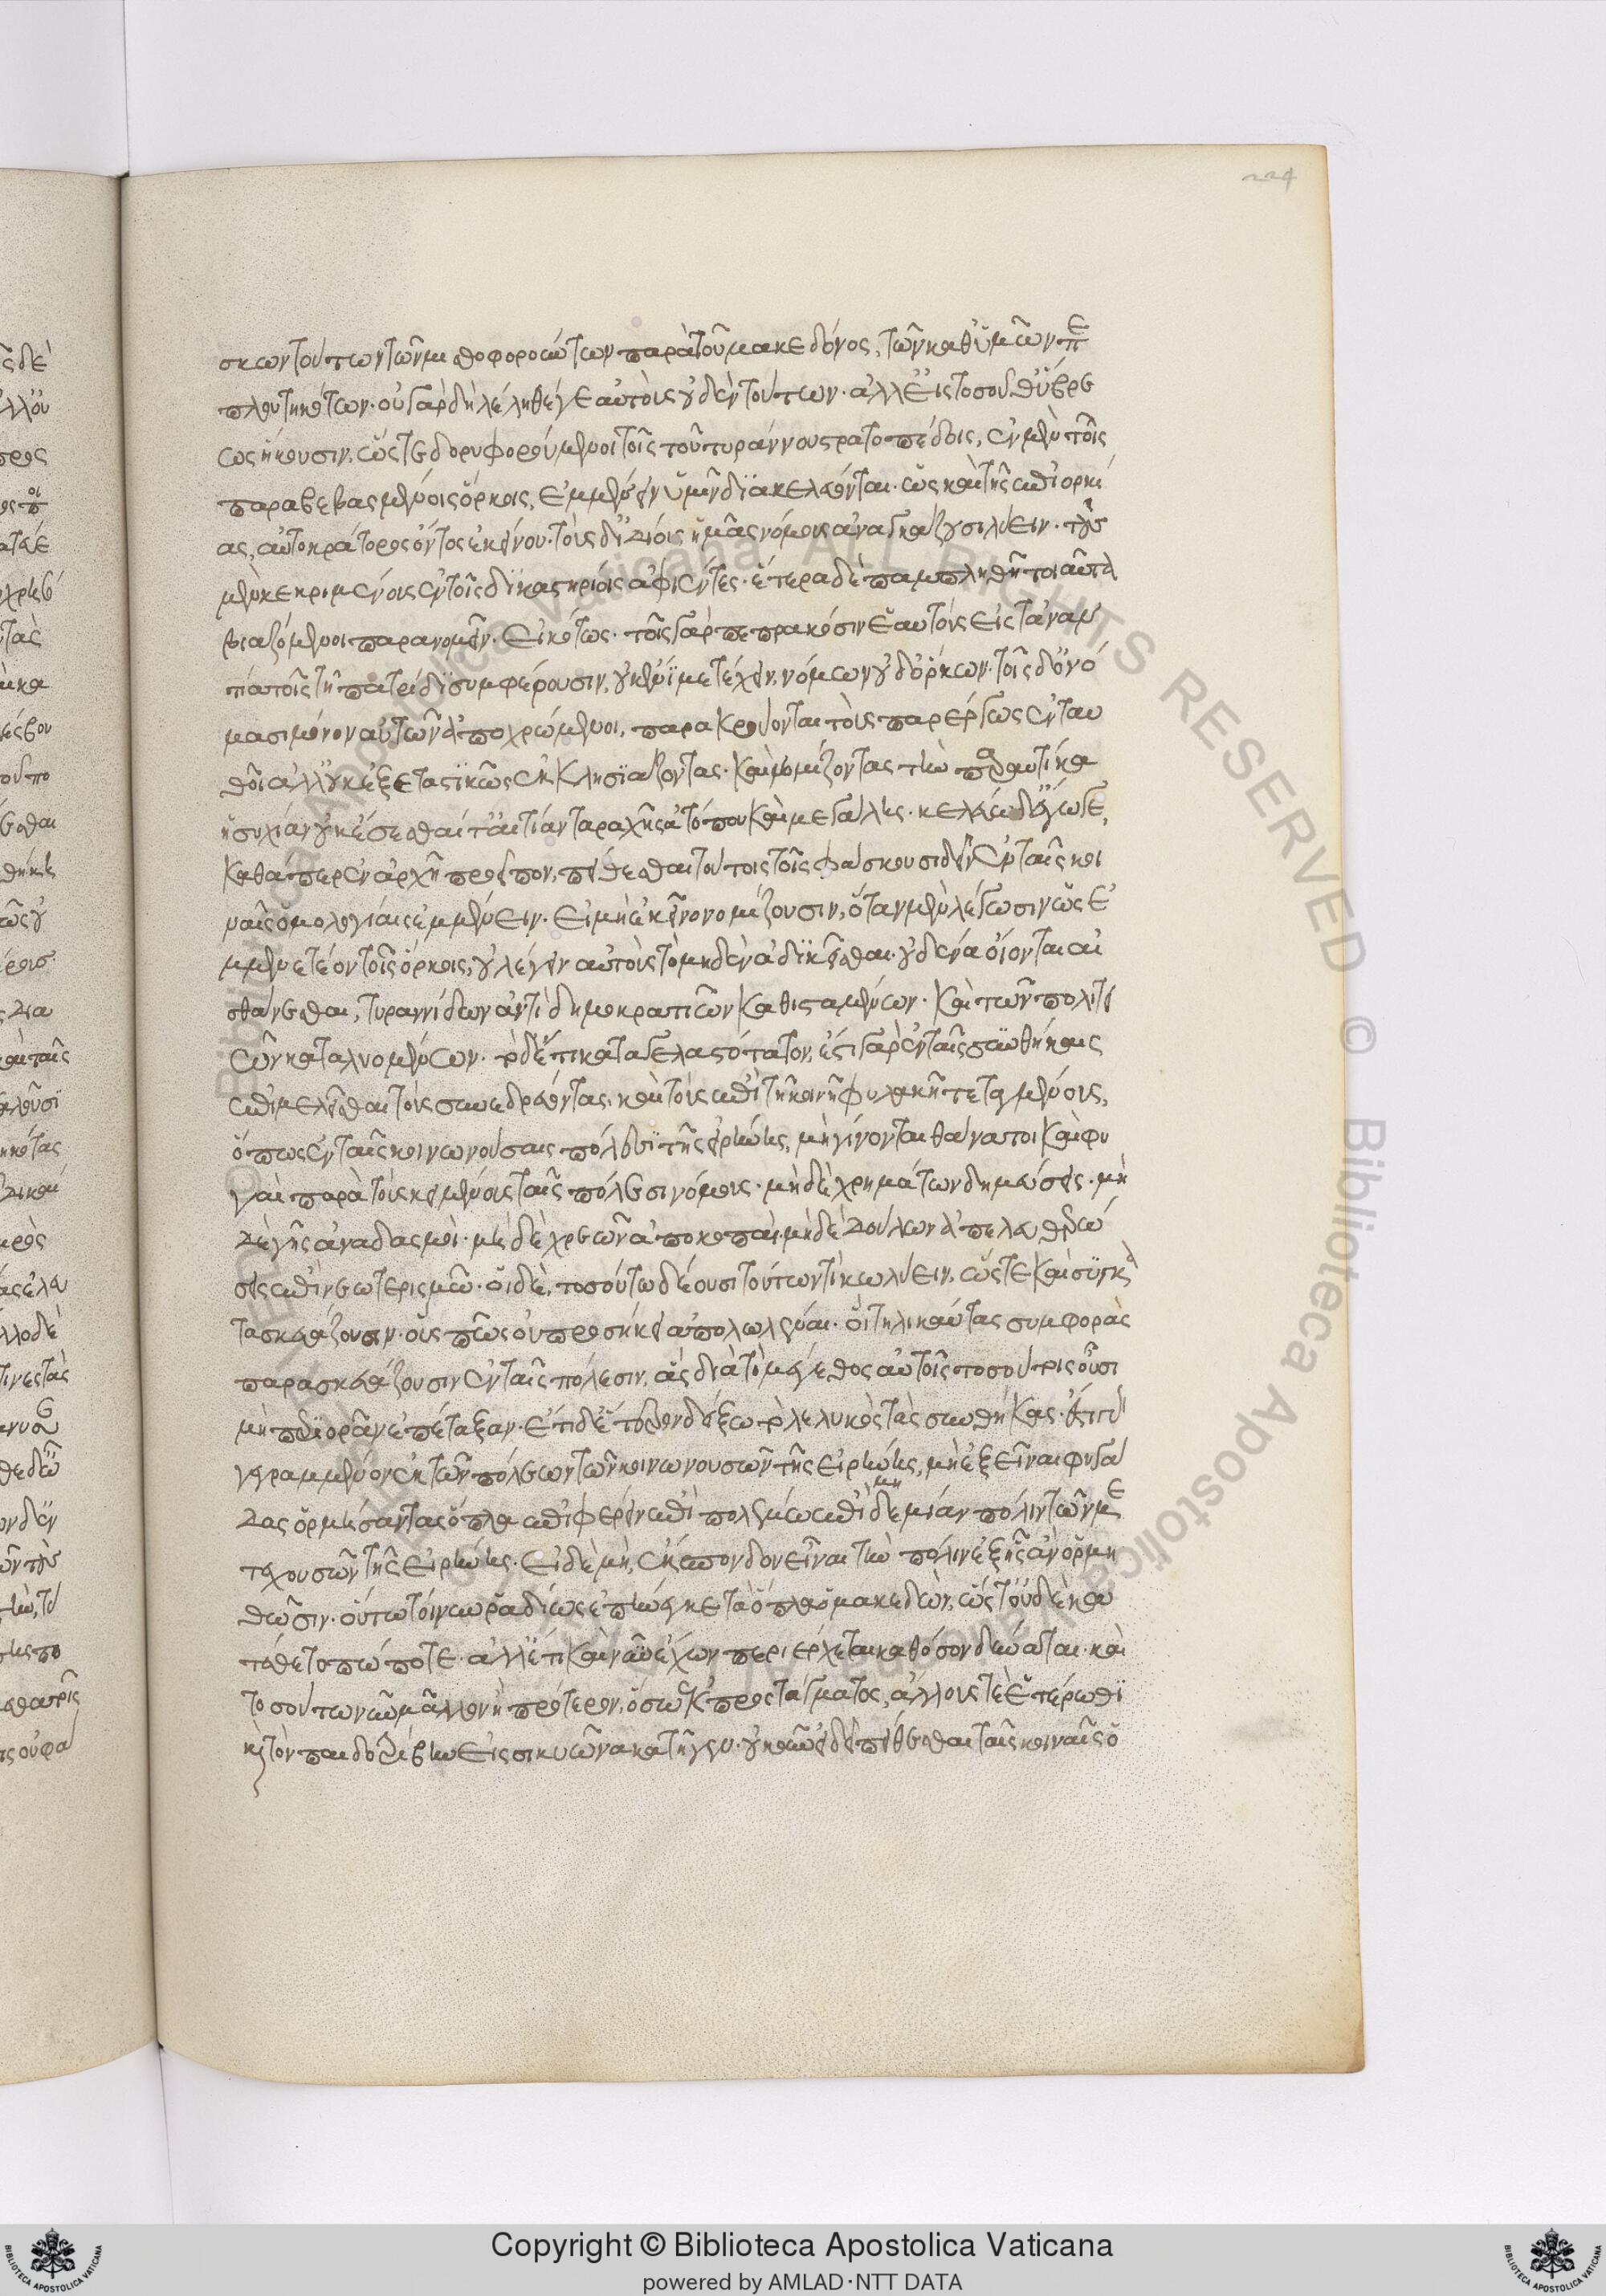 224
σκων τούτων τῶν μισθοφορούντων παρὰ τοῦ μακεδόνος, τῶν καθ' ὑμῶν πε
πλουτηκότων· οὐ γὰρ δὴ λέληθέ γε αὐτοὺς οὐδὲν τούτων· ἀλλ' εἰς τοσοῦθ' ὕβρε
ως ἥκουσιν, ὥστε δορυφορούμενοι τοῖς τοῦ τυράννου στρατοπέδοις, ἐν μὲν τοῖς
παραβεβασμένοις ὅρκοις, ἐμμένειν ὑμῖν διακελεύονται· ὡς καὶ τῆς ἐπιορκί
ας, αὐτοκράτορος ὄντος ἐκείνου· τοὺς δ' ἰδίους ἡμᾶς νόμους ἀναγκάζουσι λύειν· τοὺς
μὲν κεκριμένους ἐν τοῖς δικαστηρίοις ἀφιέντες· ἕτερα δὲ παμπληθῆ τοιαῦτα
βιαζόμενοι παρανομεῖν· εἰκότως· τοῖς γὰρ πεπρακόσιν ἑαυτοὺς εἰς τἀναν
τία τοῖς τῇ πατρίδι συμφέρουσιν, οὐκ ἔνι μετέχειν, νόμων οὐδ' ὅρκων· τοῖς δ' ὀνό
μασι μόνον αὐτῶν ἀποχρώμενοι, παρακρούονται τοὺς παρέργως ἐνταυ
θοῖ ἀλλ' οὐκ ἐξεταστικῶς ἐκκλησιάζοντας· καὶ νομίζοντας τὴν παραυτίκα
ἡσυχίαν οὐκ ἔσεσθαί τ' αἰτίαν ταραχῆς ἀτόπου καὶ μεγάλης· κελεύω δ' ἔγωγε,
καθάπερ ἐν ἀρχῇ προεῖπον, πείθεσθαι τούτοις τοῖς φάσκουσι δεῖν ἐν ταῖς κοι
ναῖς ὁμολογίαις ἐμμένειν· εἰ μὴ ἐκεῖνο νομίζουσιν, ὅταν μὲν λέγωσιν ὡς ἐ
μμενετέον τοῖς ὅρκοις, οὐ λέγειν αὐτοὺς τὸ μηδένα ἀδικεῖσθαι· οὐδένα οἴονται αἰ
σθάνεσθαι, τυραννίδων ἀντὶ δημοκρατιῶν καθισταμένων· καὶ τῶν πολιτει
ῶν καταλυομένων· τὸ δ' ἔτι καταγελαστότατον, ἔστι γὰρ ἐν ταῖς συνθήκαις
ἐπιμελεῖσθαι τοὺς συνεδρεύοντας, καὶ τοὺς ἐπὶ τῇ κοινῇ φυλακῇ τεταγμένους,
ὅπως ἐν ταῖς κοινωνούσαις πόλεσι τῆς εἰρήνης, μὴ γίνονται θάνατοι καὶ φυ
γαὶ παρὰ τοὺς κειμένους ταῖς πόλεσι νόμους· μὴ δὲ χρημάτων δημεύσεις· μὴ
δὲ γῆς ἀναδασμοὶ· μὴ δὲ χρεῶν ἀποκοπαὶ· μὴ δὲ δούλων ἀπελευθερώ
σεις ἐπὶ νεωτερισμῷ· οἱ δὲ, τοσούτω δέουσι τούτων τὶ κωλύειν, ὥστε καὶ συγκα
τασκευάζουσιν· οὓς πῶς οὐ προσήκει ἀπολωλέναι· οἳ τηλικαύτας συμφορὰς
παρασκευάζουσιν ἐν ταῖς πόλεσιν, ἃς διὰ τὸ μέγεθος αὐτοῖς τοσούτοις οὖσι
μὴ περιορᾶν ἐπέταξαν· ἔτι δ' ἕτερον δείξω τὸ λελυκὸς τὰς συνθήκας· ἔστι
γεγραμμένον ἐκ τῶν πόλεων τῶν κοινωνουσῶν τῆς εἰρήνης, μὴ ἐξεῖναι φυγά
δας ὁρμήσαντας ὅπλα ἐπιφέρειν ἐπὶ πολέμω ἐπὶ μηδεμίαν πόλιν τῶν με
τεχουσῶν τῆς εἰρήνης· εἰ δὲ μὴ, ἔκσπονδον εἶναι τὴν πόλιν ἐξ ἧς ἂν ὁρμη
θῶσιν· οὕτω τοίνυν ῥαδίως ἐπήνεγκε τὰ ὅπλα ὁ μακεδὼν, ὥστ' οὐδὲ κα
τέθετο πώποτε· ἀλλ' ἔτι καὶ νῦν ἔχων περιέρχεται καθ' ὅσον δύναται· καὶ
τοσούτω νῦν μᾶλλον ἢ πρότερον, ὅσω ἐκ προστάγματος, ἄλλους τε ἑτέρωθι
καὶ τὸν παιδοτρίβην εἰς σικυῶνα κατήγαγεν· οὐκοῦν εἰ δεῖ πείθεσθαι ταῖς κοιναῖς ὁ
© Biblioteca Apostolica Vaticana ALL RIGHTS RESERVED © Biblioteca Apostolica Vaticana
Copyright © Biblioteca Apostolica Vaticana
powered by AMLAD·NTT DATA